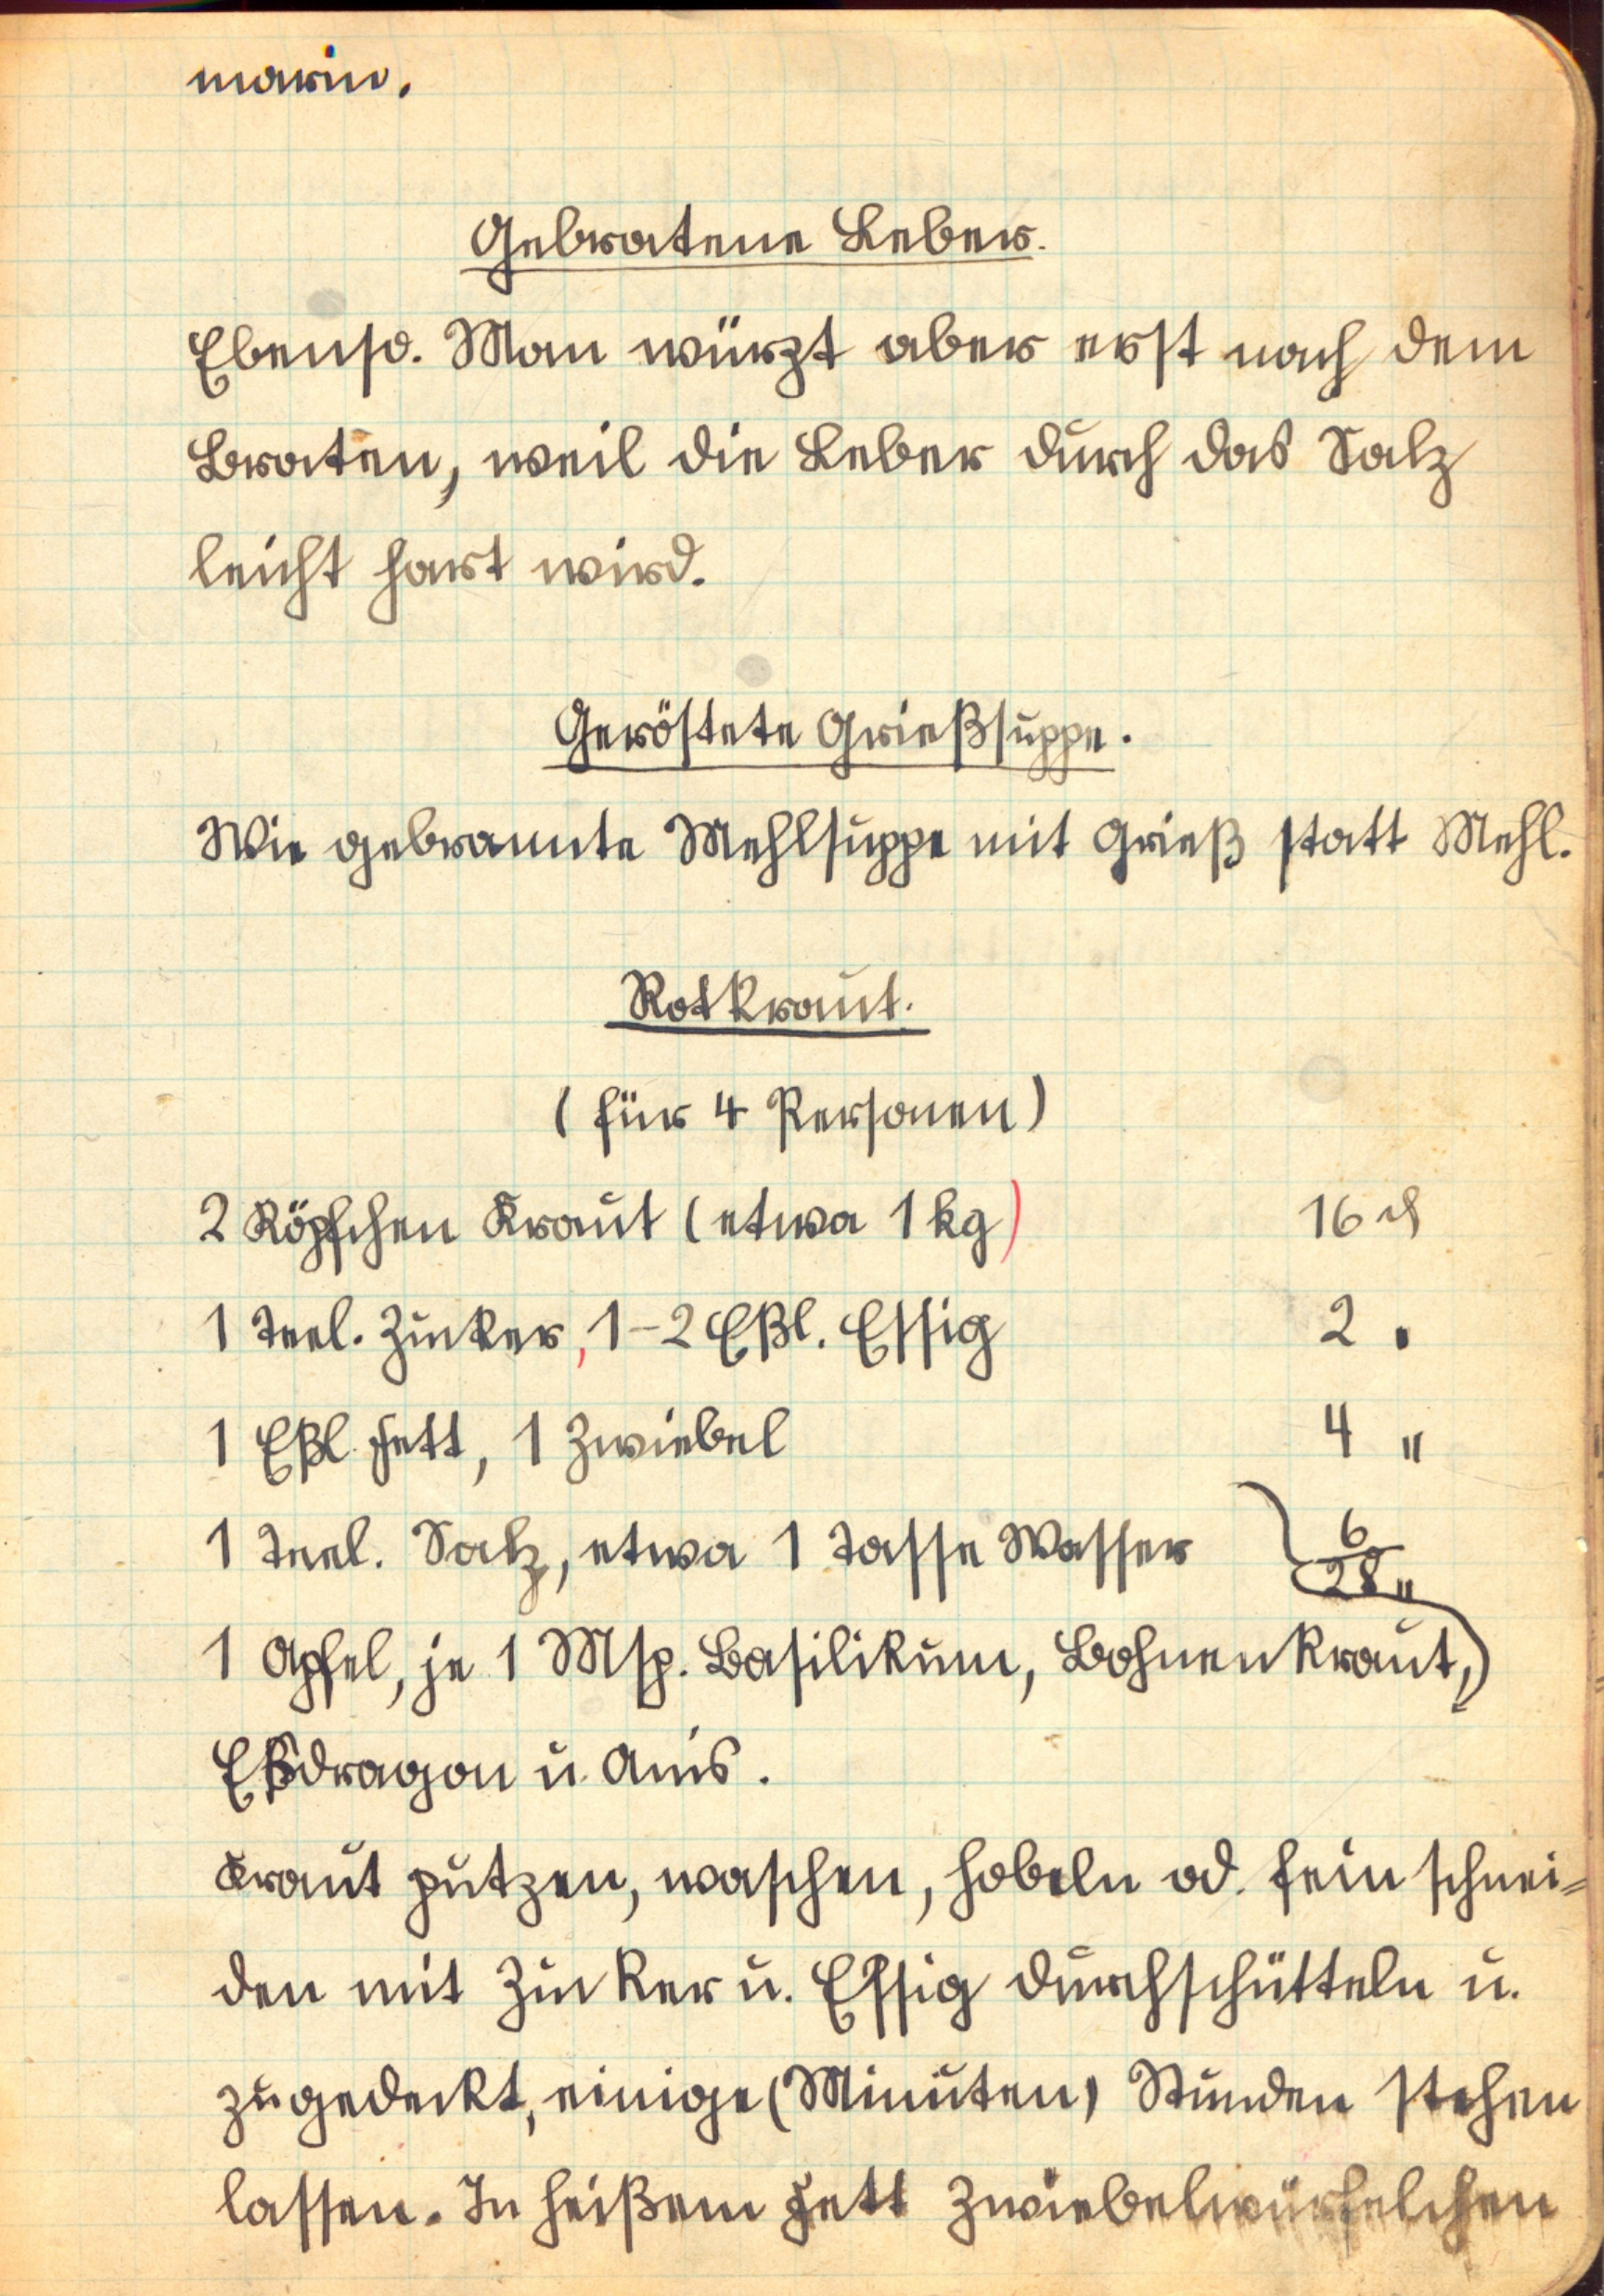 marin.
Gebratene Leber.
Ebenso. Man würzt aber erst nach dem
Braten, weil die Leber durch das Salz
leicht hart wird.
Geröstete Grießsuppe.
Wie gebrannte Mehlsuppe mit Grieß statt Mehl.
Rotkraut.
(für 4 Personen)
2 Köpfchen Kraut (etwa 1 kg) 16 ₰
1 Teel. Zucker, 1-2 Eßl. Essig 2 "
1 Eßl. Fett, 1 Zwiebel 4 "
1 Teel. Salz, etwa 1 Tasse Wasser 6
28 "
1 Apfel, je 1 Msp. Basilikum, Bohnenkraut,
Eßdragon u. Anis.
Kraut putzen, waschen, hobeln od. fein schnei=
den mit Zucker u. Essig durchschütteln u.
zugedeckt, einige (Minuten) Stunden stehen
lassen. In heißem Fett Zwiebelwürfelchen